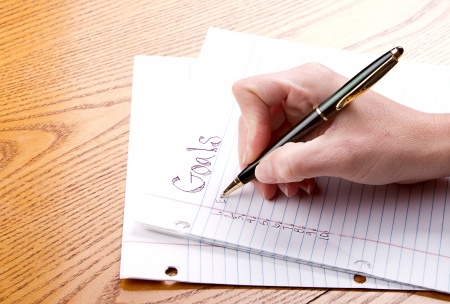 Goals
1
2
3
4
5
6
7
8
9
10